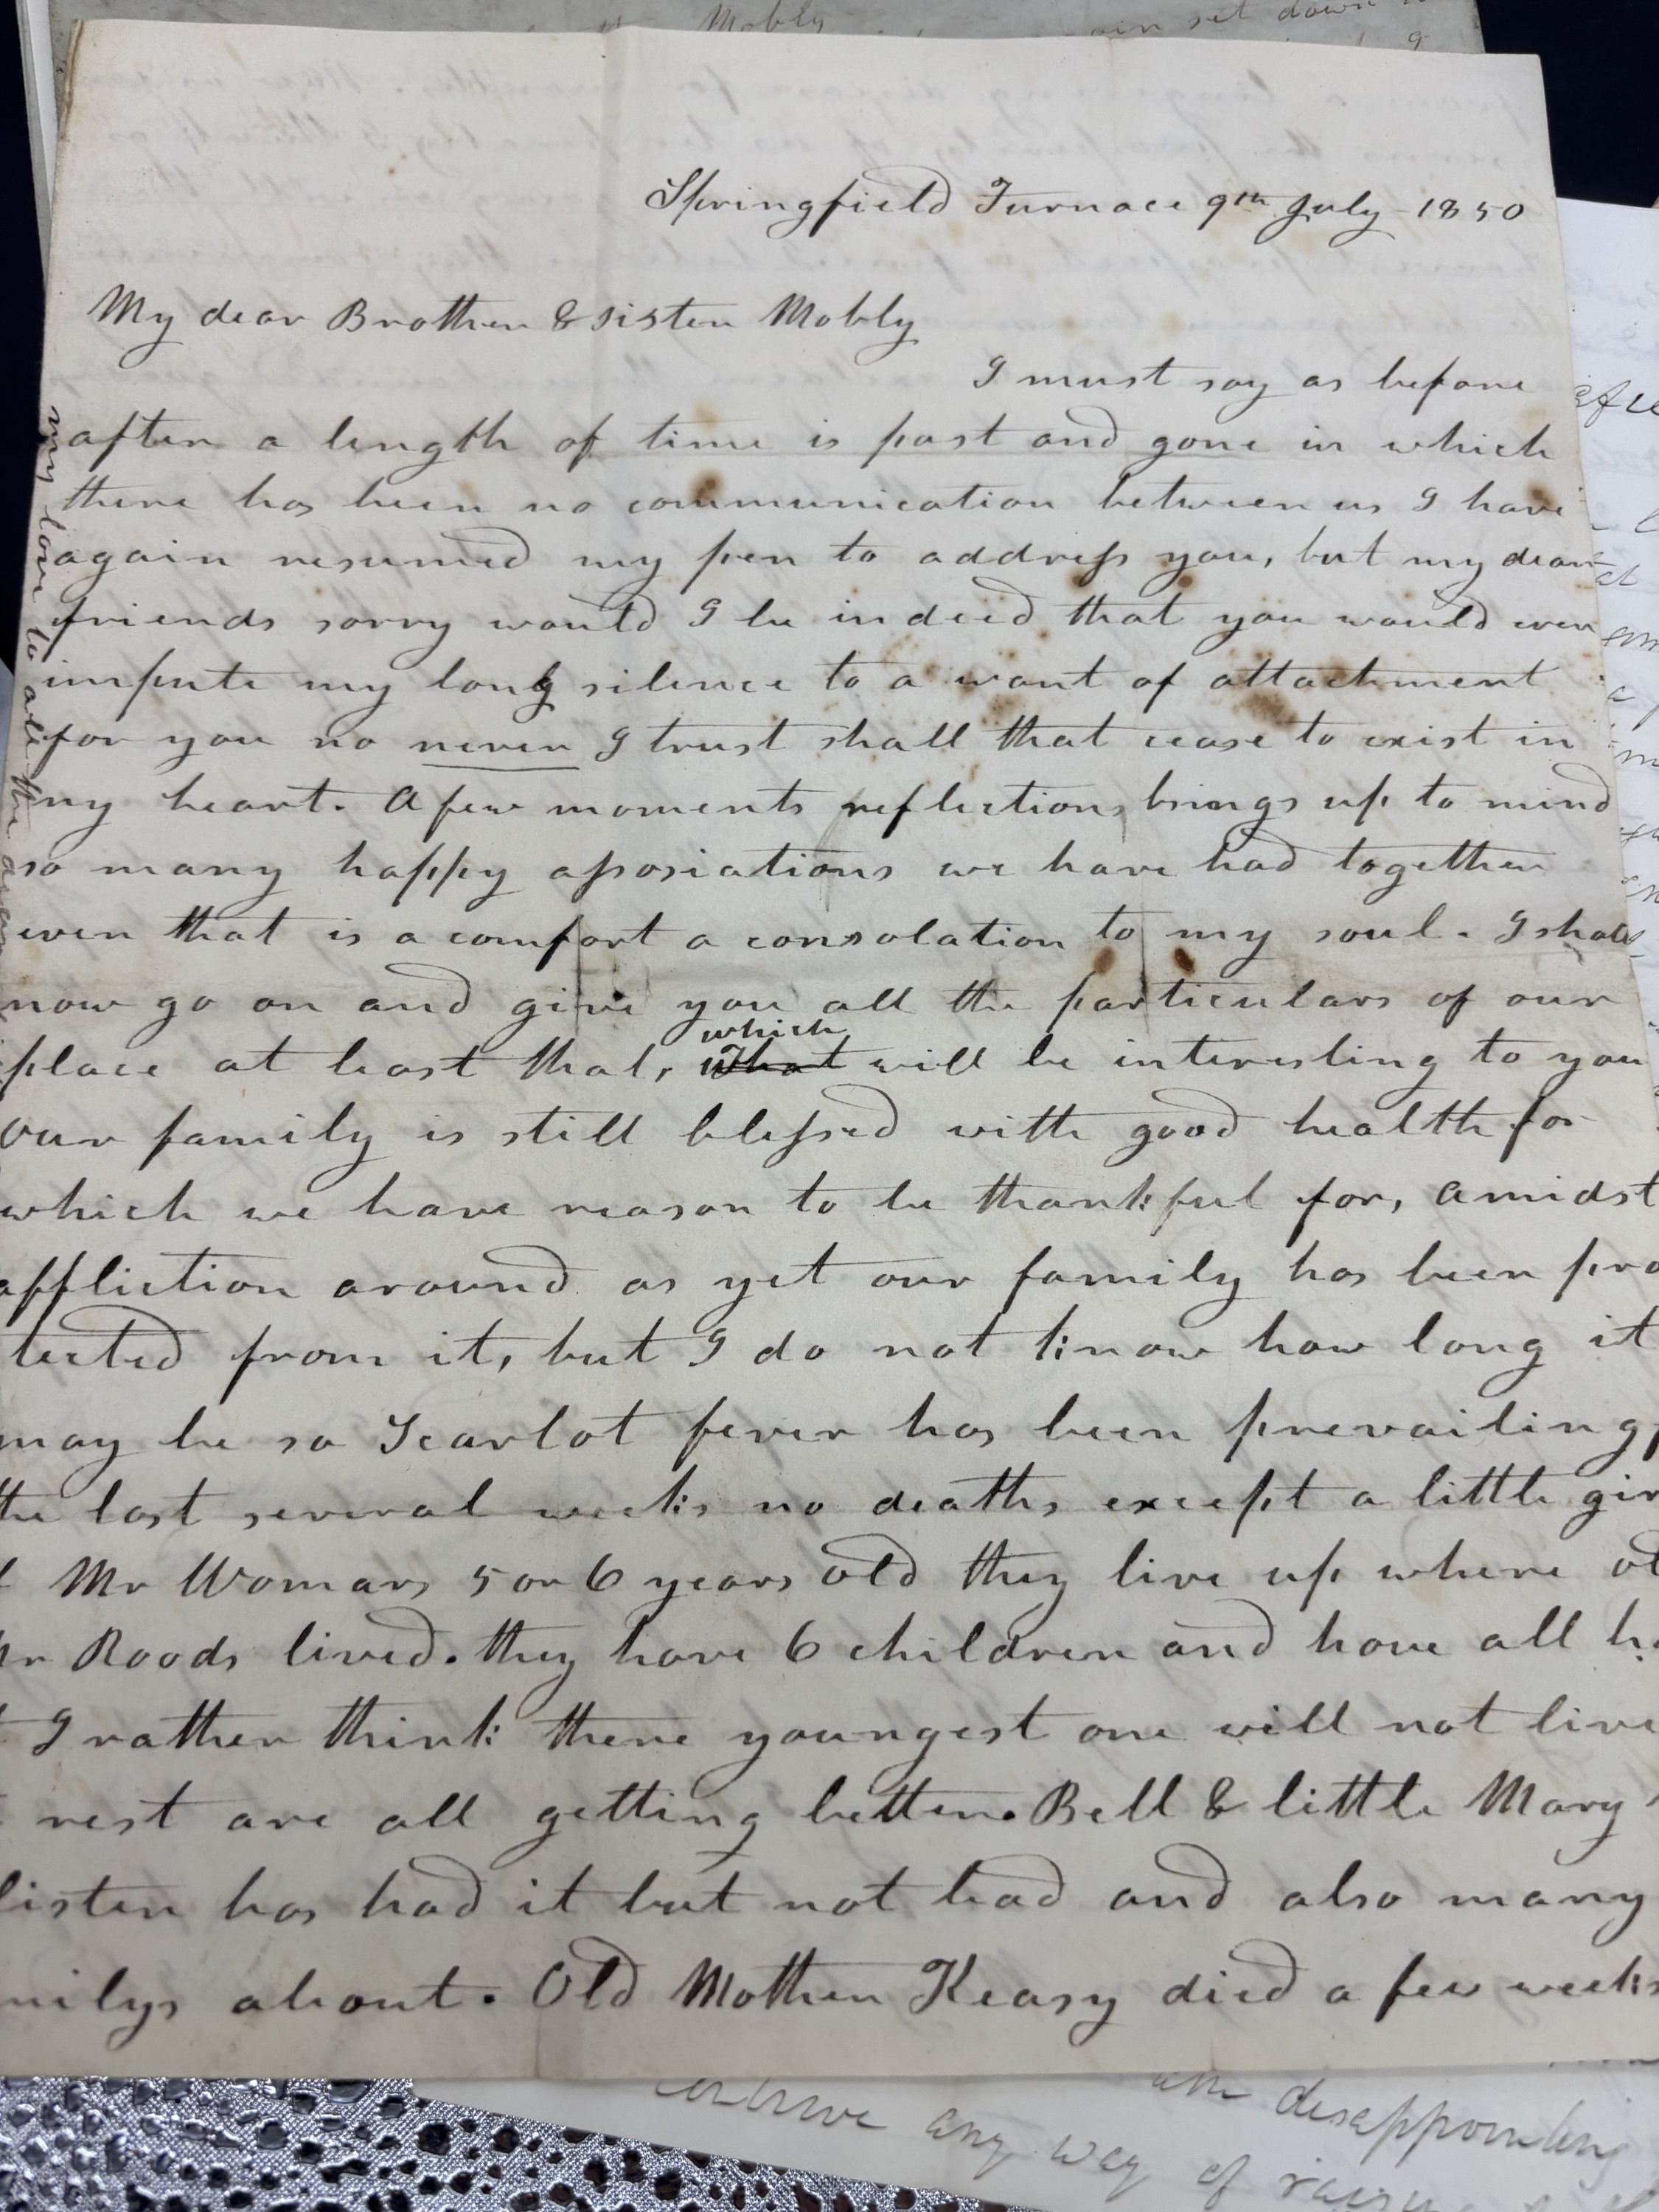 Mobly
set down
Springfield Furnace 9th July 1850
My dear Brother & sister Mobly
I must say as before
after a length of time is past and gone in which
there has been no communication between us I have
again resumed my pen to address you, but my dear
friends sorry would I be indeed that you would ever
impute my long silence to a want of attachment
for you no never I trust shall that cease to exist in
my heart. A few moments reflection, brings up to mind
so many happy assosiations we have had together
even that is a comfort a consolation to my soul. I shall
now go on and give you all the particulars of our
which
place at least that, that will be interesting to you
our family is still blessed with good health for
which we have reason to be thankful for, amidst
affliction around as yet our family has been pro
tected from it, but I do not know how long it
may be so Scarlot fever has been prevailing
the last several weeks no deaths except a little gir
Mr Womars 5 or 6 years old they live up where ol
Mr Roods lived. they have 6 children and have all ha
I rather think there youngest one will not live
rest are all getting better. Bell & little Mary
lister has had it but not bad and also many
milys about. Old Mother Keasy died a few weeks
my love to all the
any way of
disappointing